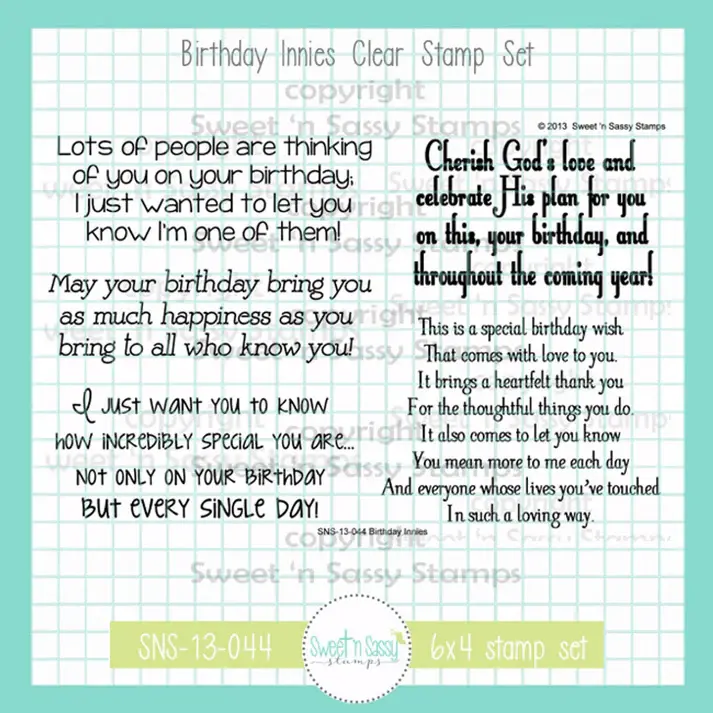 Birthday Innies Clear Stamp Set
copyright
Sweet 'n Sassy Stamps
© 2013 Sweet 'n Sassy Stamps
Lots of people are thinking
of you on your birthday;
I just wanted to let you
know I'm one of them!
May your birthday bring you
as much happiness as you
bring to all who know you!
I just want you to know
how incredibly special you are...
not only on your birthday
but every single day!
Cherish God's love and
celebrate His plan for you
on this, your birthday, and
throughout the coming year!
This is a special birthday wish
That comes with love to you.
It brings a heartfelt thank you
For the thoughtful things you do.
It also comes to let you know
You mean more to me each day
And everyone whose lives you've touched
In such a loving way.
SNS-13-044 Birthday Innies
copyright
Sweet 'n Sassy Stamps
SNS-13-044
Sweet 'n Sassy
stamps
6x4 stamp set